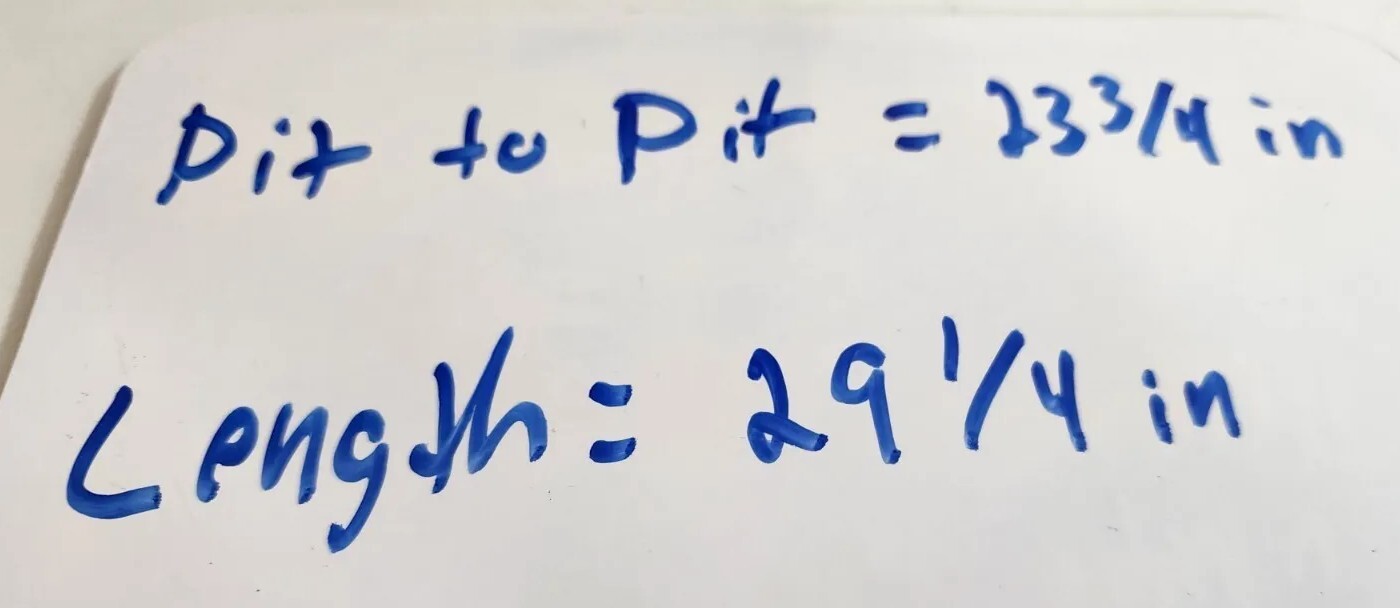 Pit to Pit = 23 3/4 in
Length = 29 1/4 in